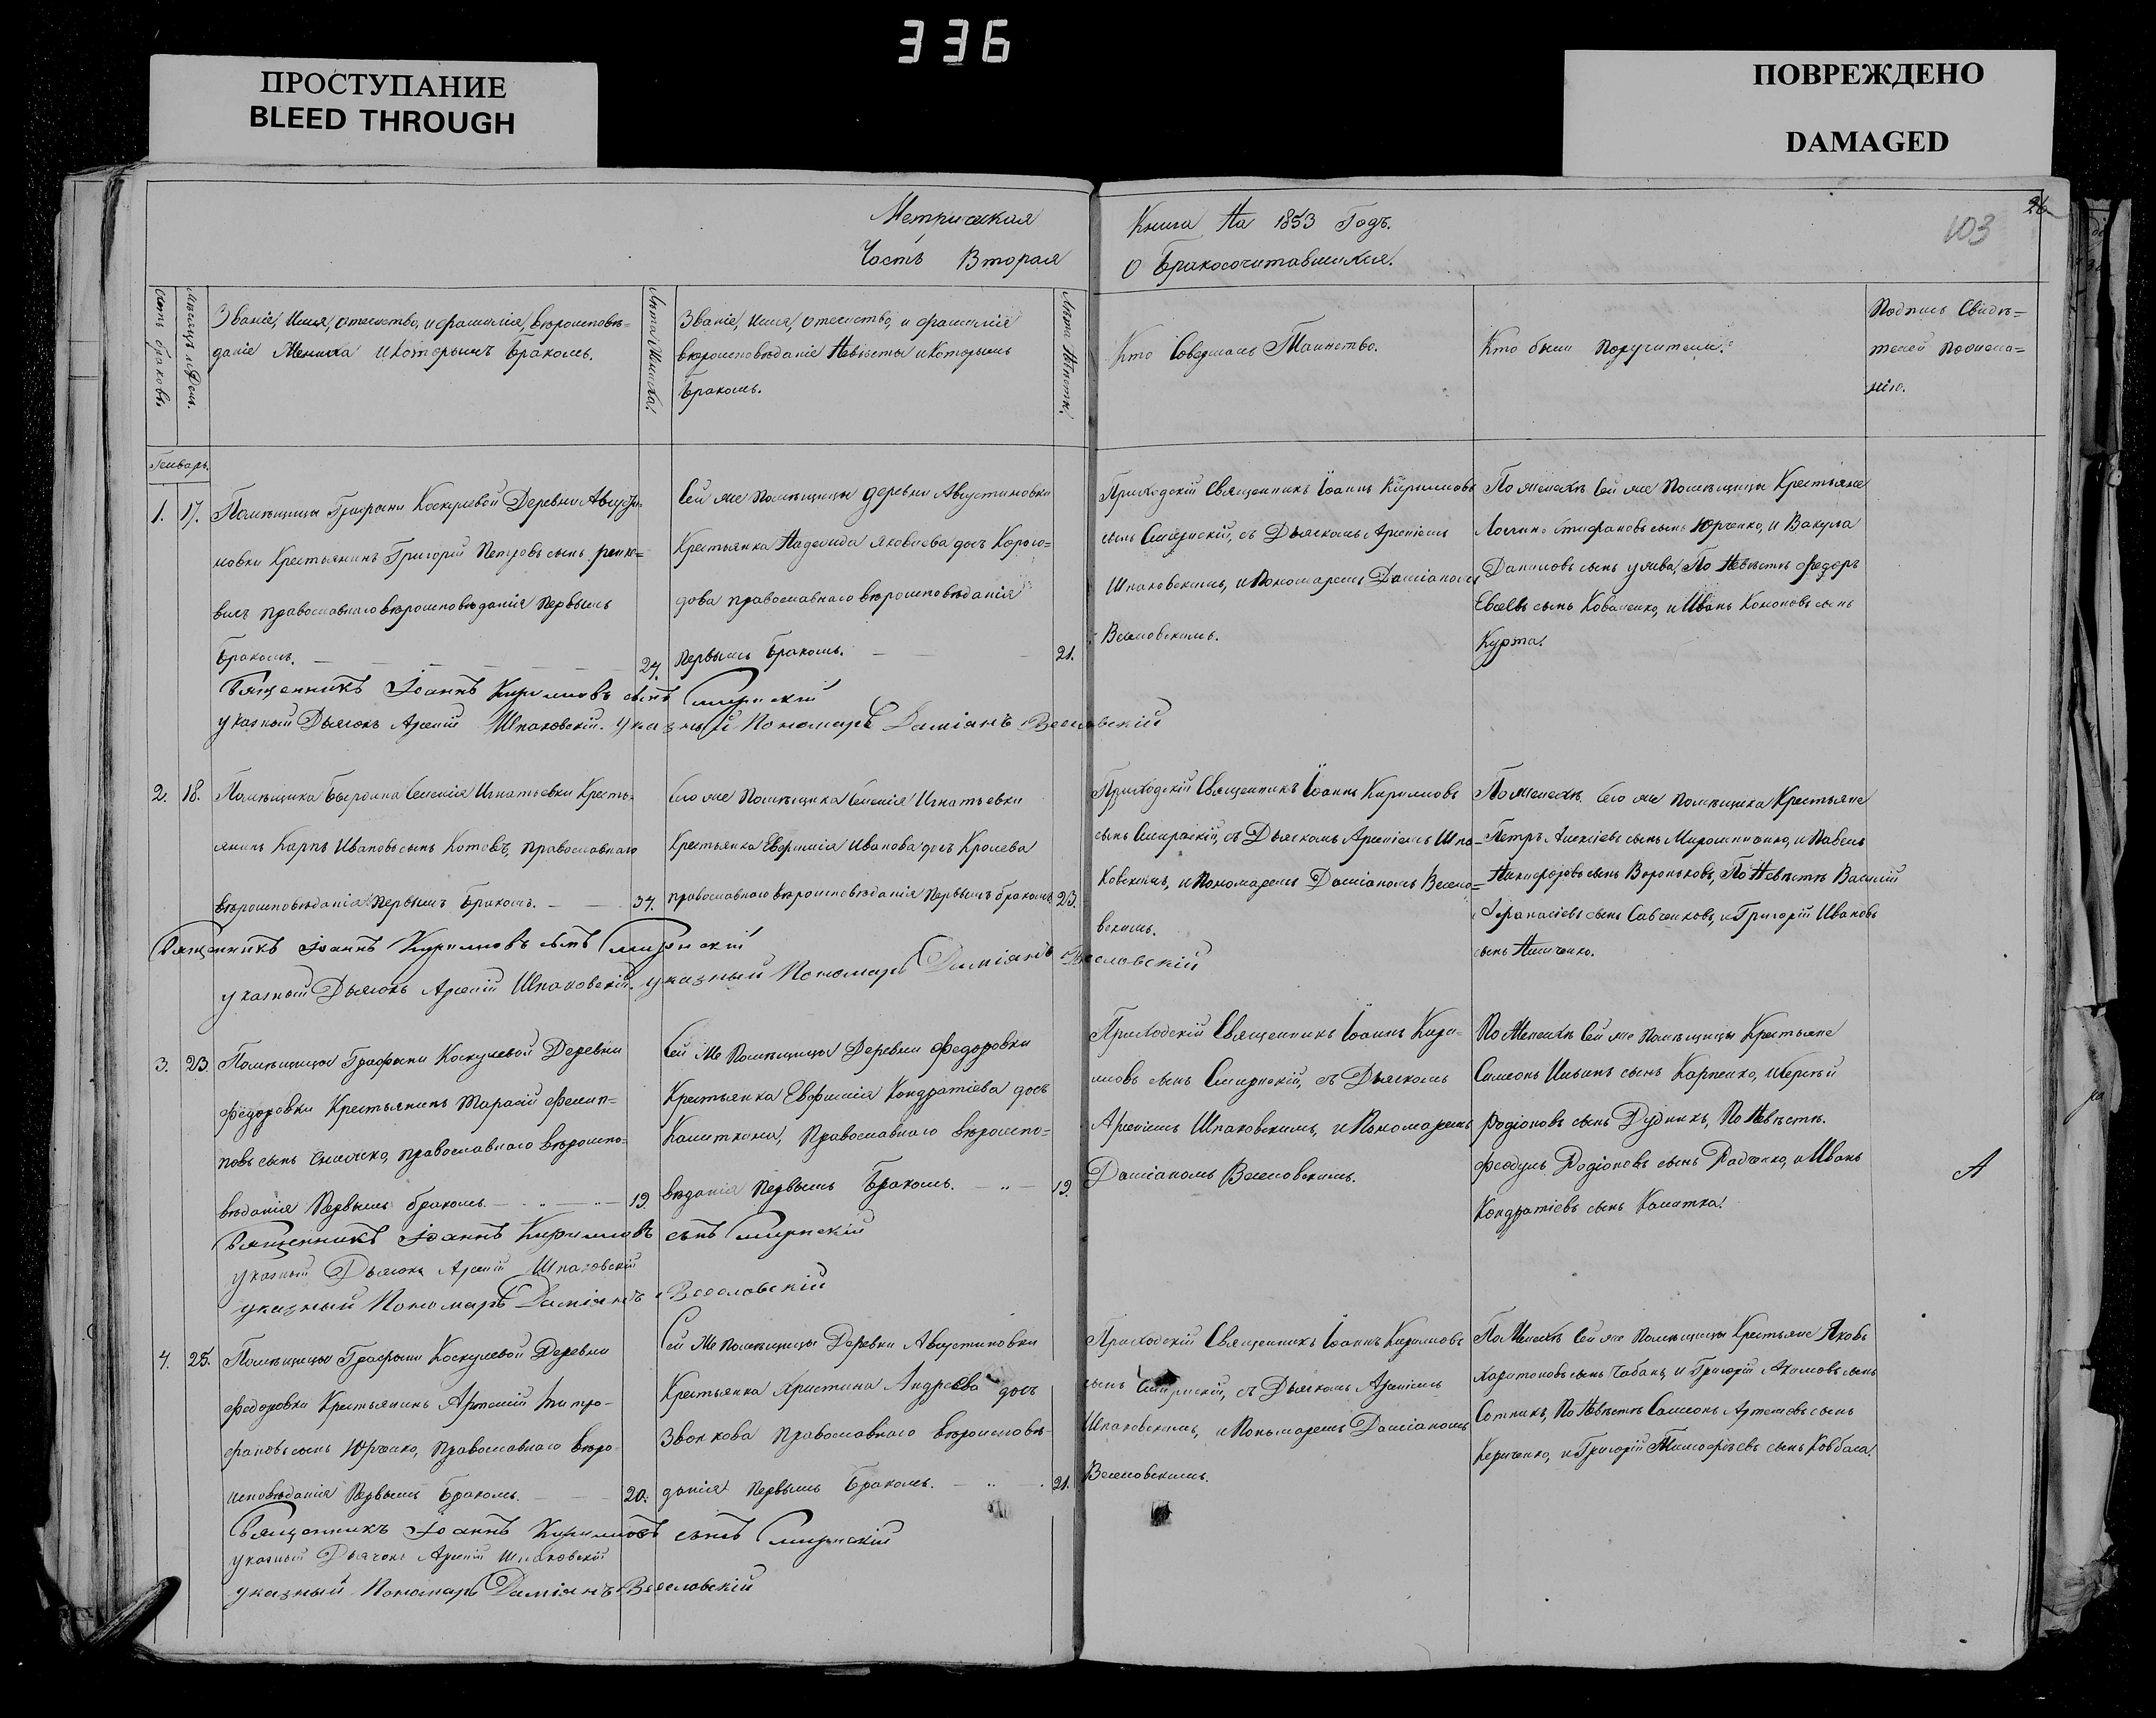 336
ПРОСТУПАНИЕ
BLEED THROUGH
ПОВРЕЖДЕНО
DAMAGED
26
103
Метрическая Книга На 1853 Годъ.
Часть Вторая О Бракосочитавшихся.
Счетъ браковъ.
Мѣсяцъ и День.
Званіе, Имя, Отечество, и фамилія, вѣроисповѣ=
даніе Жениха и которымъ Бракомъ.
Лѣта Жениха.
Званіе, Имя, Отечество, и фамилія
вѣроисповѣданіе Невѣсты и Которымъ
Бракомъ.
Лѣта Невѣсты.
Кто Совершалъ Таинство.
Кто были Поручители.
Подпись Свидѣ=
телей по желанію.
Генварь.
1. 17.
Помѣщицы Графини Коскулевой Деревни Августи-
новки Крестьянинъ Григорій Петровъ сынъ
православнаго вѣроисповѣданія Первымъ
Бракомъ. 24.
Сей же Помѣщицы деревни Августиновки
Крестьянка Надежда Яковлева дочъ
православнаго вѣроисповѣданія
Первымъ Бракомъ. 21.
Приходскій Священникъ Іоаннъ Кириловъ
сынъ Смирнскій, съ Дьячкомъ Арсеніемъ
Шпаковскимъ, и Пономаремъ Даміаномъ
Веселовскимъ.
По женихѣ Сей же Помѣщицы Крестьяне
Логинъ Стефановъ сынъ Юрченко, и Вакула
Даниловъ сынъ По Невѣстѣ Федоръ
Евсеевъ сынъ Коваленко, и Иванъ Кононовъ сынъ
Курта.
Священникъ Іоаннъ Кирилловъ сынъ Смирнскій
указный Дьячокъ Арсеній Шпаковскій. Указный Пономарь Даміанъ Веселовскій
2. 18.
Помѣщика Селенія Игнатьевки Кресть-
янинъ Карпъ Ивановъ сынъ Котовъ, православнаго
вѣроисповѣданія Первымъ Бракомъ. 37.
Его же Помѣщика Селенія Игнатьевки
Крестьянка Евфимія Иванова дочъ Кролева
православнаго вѣроисповѣданія Первымъ бракомъ 23.
Приходскій Священникъ Іоаннъ Кириловъ
сынъ Смирнскій, съ Дьячкомъ Арсеніемъ Шпа-
ковскимъ, и Пономаремъ Даміаномъ Весело-
вскимъ.
По женихѣ Его же Помѣщика Крестьяне
Петръ Алексіевъ сынъ Мирошниченко, и Павелъ
Никифоровъ сынъ Вороньковъ, По Невѣстѣ Василій
Афанасіевъ сынъ Савченковъ, и Григорій Ивановъ
сынъ
Священникъ Іоаннъ Кирилловъ сынъ Смирнскій
указный Дьячокъ Арсеній Шпаковскій. указный Пономарь Даміанъ Веселовскій
3. 23.
Помѣщицы Графини Коскулевой Деревни
Федоровки Крестьянинъ Тарасій Филип-
повъ сынъ православнаго вѣроиспо-
вѣданія Первымъ бракомъ 19.
Сей же Помѣщицы Деревни Федоровки
Крестьянка Евфимія Кондратіева дочъ
Калиткина, Православнаго вѣроиспо-
вѣданія Первымъ Бракомъ. 19.
Приходскій Священникъ Іоаннъ Кири-
ловъ сынъ Смирнскій, съ Дьячкомъ
Арсеніемъ Шпаковскимъ, и Пономаремъ
Даміаномъ Веселовскимъ.
По Женихѣ Сей же Помѣщицы Крестьяне
Симеонъ Ильинъ сынъ Карпенко, и Сергѣй
Родіоновъ сынъ Дудникъ, По Невѣстѣ.
Феодулъ Родіоновъ сынъ Радченко, и Иванъ
Кондратіевъ сынъ Калитка.
А
Священникъ Іоаннъ Кирилловъ сынъ Смирнскій
указный Дьячокъ Арсеній Шпаковскій
указный Пономарь Даміанъ Веселовскій
4. 25.
Помѣщицы Графини Коскулевой Деревни
Федоровки Крестьянинъ Артемій Митро-
фановъ сынъ Юрченко, Православнаго вѣро-
исповѣданія Первымъ Бракомъ. 20.
Сей Же Помѣщицы Деревни Августиновки
Крестьянка Христина Андреева дочъ
Звонкова Православнаго вѣроисповѣ-
данія Первымъ Бракомъ. 21.
Приходскій Священникъ Іоаннъ Кириловъ
сынъ Смирнскій, съ Дьячкомъ Арсеніемъ
Шпаковскимъ, и Пономаремъ Даміаномъ
Веселовскимъ.
По Женихѣ Сей же Помѣщицы Крестьяне Яковъ
Харитоновъ сынъ Чабанъ, и Григорій Акимовъ сынъ
Сотникъ, По Невѣстѣ Самсонъ Артемовъ сынъ
Кериченко, и Григорій Тимофѣевъ сынъ Ковбаса.
Священникъ Іоаннъ Кирилловъ сынъ Смирнскій
указный Дьячокъ Арсеній Шпаковскій
указный Пономарь Даміанъ Веселовскій